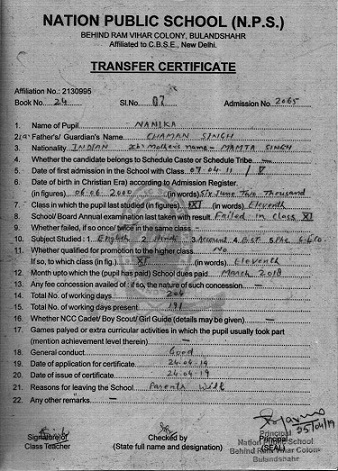 NATION PUBLIC SCHOOL (N.P.S.)
BEHIND RAM VIHAR COLONY, BULANDSHAHR
Affiliated to C.B.S.E., New Delhi.
TRANSFER CERTIFICATE
Affiliation No. : 2130995
Book No. 24 Sl.No. 07 Admission No. 2065
1. Name of Pupil NANIKA
2. Father's/ Guardian's Name CHAMAN SINGH
3. Nationality INDIAN Mother's name - MAMTA SINGH
4. Whether the candidate belongs to Schedule Caste or Schedule Tribe
5. Date of first admission in the School with Class 07.04.11 / V
6. Date of birth in Christian Era) according to Admission Register.
(in figures) 06.06.2000 (in words) Six June Two Thousand
7. Class in which the pupil last studied (in figures) XI (in words) Eleventh
8. School/ Board Annual examination last taken with result Failed in class XI
9. Whether failed, if so once/ twice in the same class
10. Subject Studied : 1. English 2. Hindi 3. Account 4. B.ST 5. Phe 6. Eco
11. Whether qualified for promotion to the higher class No
If so, to which class (in fig.) XI (in words) Eleventh
12. Month upto which the (pupil has paid) School dues paid March 2018
13. Any fee concession availed of : if so, the nature of such concession
14. Total No. of working days 204
15. Total No. of working days present 191
16. Whether NCC Cadet/ Boy Scout/ Girl Guide (details may be given)
17. Games palyed or extra curricular activities in which the pupil usually took part
(mention achievement level therein)
18. General conduct Good
19. Date of application for certificate 24-04-19
20. Date of issue of certificate 24-04-19
21. Reasons for leaving the School Parents Wish
22. Any other remarks
25/04/19
Signature of
Class Teacher
Checked by
(State full name and designation)
Principal
(SEAL)
Principal
Nation Public School
Behind Ram Vihar Colony
Bulandshahr